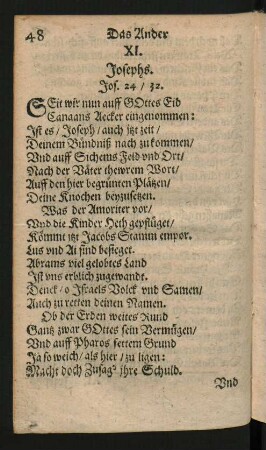 48 Das Ander
XI.
Josephs.
Jos. 24 / 32.
SEit wir nun auff GOttes Eid
Canaans Aecker eingenommen:
Ist es / Joseph / auch jtzt zeit /
Deinem Bündniß nach zu kommen /
Vnd auff Sichems Feld vnd Ort /
Nach der Väter thewrem Wort /
Auff den hier begrünten Plätzen /
Deine Knochen beyzusetzen.
Was der Amoriter vor /
Vnd die Kinder Heth gepflüget /
Kömmt jtzt Jacobs Stamm empor.
Lus vnd Ai sind besieget.
Abrams viel gelobtes Land
Ist vns erblich zugewandt.
Denck / o Israels Volck vnd Samen /
Auch zu retten deinen Namen.
Ob der Erden weites Rund
Gantz zwar GOttes sein Vermügen /
Vnd auff Pharos fettem Grund
Ja so weich / als hier / zu ligen:
Macht doch Zusag' jhre Schuld.
Vnd